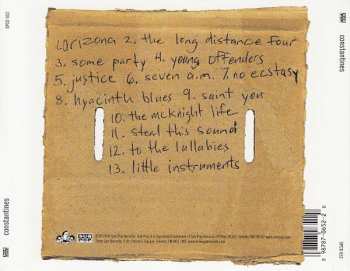 1.arizona 2. the long distance four
3. some party 4. young offenders
5. justice 6. seven a.m. 7. no ecstasy
8. hyacinth blues 9. saint you
10. the mcknight life
11. steal this sound
12. to the lullabies
13. little instruments
constantines
constantines